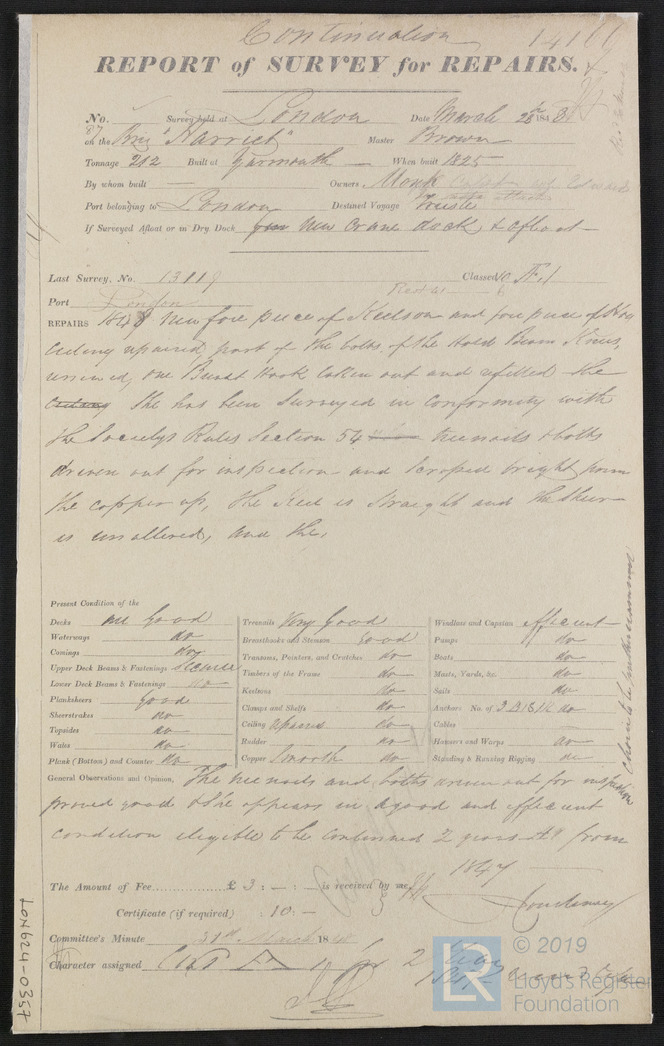 Continuation 14166
REPORT of SURVEY for REPAIRS.
No. 87 Survey held at London Date March 28th 1848
on the Brig "Harriet" Master Brown
Tonnage 212 Built at Yarmouth When built 1825
By whom built — Owners Monk
Port belonging to London Destined Voyage Trieste
If Surveyed Afloat or in Dry Dock New Crane dock & afloat
Last Survey, No. 13119 Classed
Port London
REPAIRS New fore piece of Keelson and fore piece of
Ceiling repaired part of the bolts of the Hold Beam Knees,
renewed, one Breast Hook taken out and refitted She
She has been Surveyed in conformity with
the Societys Rules Section 54 treenails & bolts
driven out for inspection and scraped bright from
the copper up, the Keel is straight and the sheer
is unaltered, and the,
Present Condition of the
Decks are Good
Waterways do
Comings do
Upper Deck Beams & Fastenings Secure
Lower Deck Beams & Fastenings do
Planksheers Good
Sheerstrakes do
Topsides do
Wales do
Plank (Bottom) and Counter do
Treenails Very Good
Breasthooks and Stemson Good
Transoms, Pointers, and Crutches do
Timbers of the Frame do
Keelsons do
Clamps and Shelfs do
Ceiling do
Rudder do
Copper Smooth do
Windlass and Capstan efficient
Pumps do
Boats do
Masts, Yards, &c. do
Sails do
Anchors No. of do
Cables
Hawsers and Warps do
Standing & Running Rigging do
General Observations and Opinion, The treenails and bolts driven out for inspection
proved good & she appears in a good and efficient
condition eligible to be continued 2 years from
1847
The Amount of Fee £ 3 : - : - is received by me,
Certificate (if required) : 10 : -
Committee's Minute 31st March 1848
Character assigned for 2
LON624-0357
LR
© 2019
Lloyd's Register
Foundation